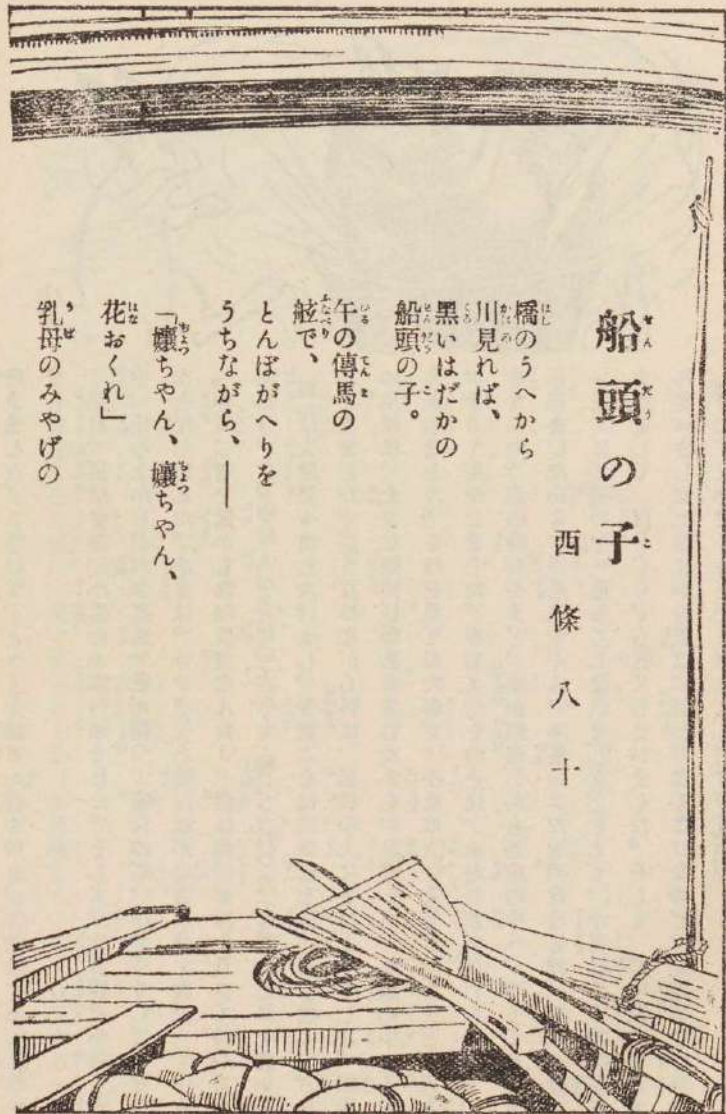 船頭の子
西條八十
橋のうへから
川見れば、
黒いはだかの
船頭の子。
午の傳馬の
舷で、
とんぼがへりを
うちながら、――
「孃ちやん、孃ちやん、
花おくれ」
乳母のみやげの